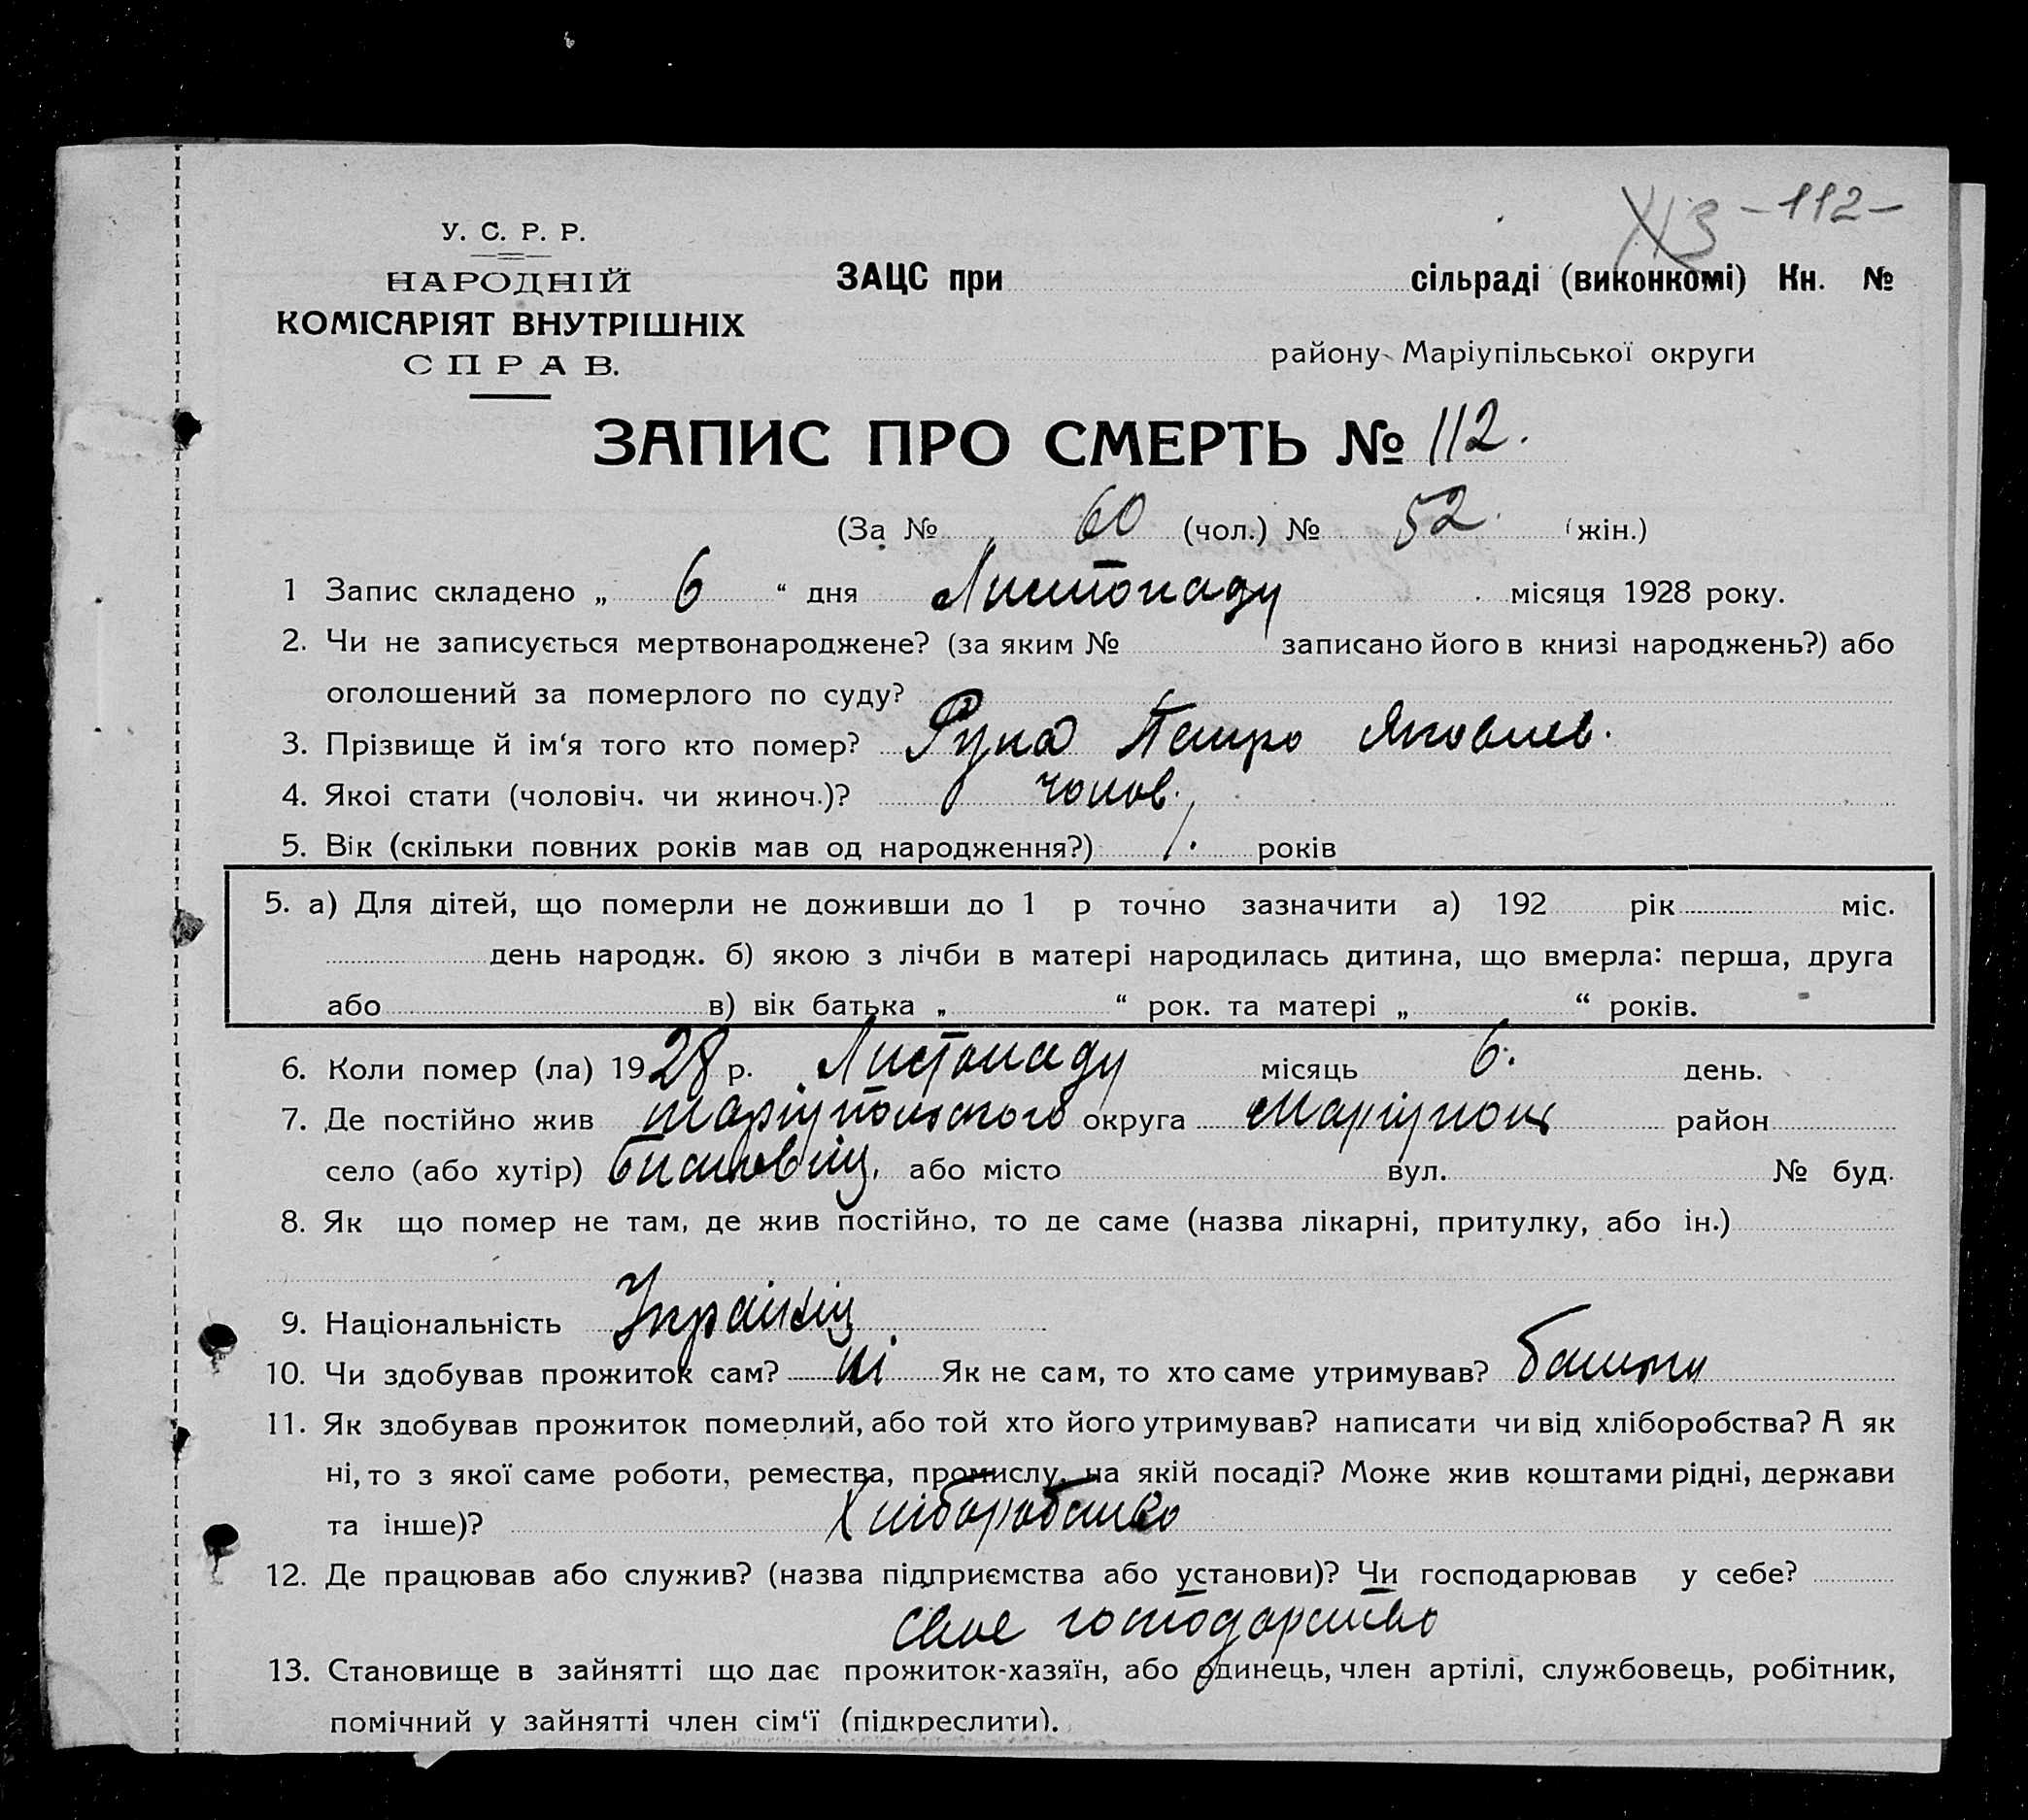 - 112 -
У. С. Р. Р.
НАРОДНІЙ
КОМІСАРІЯТ ВНУТРІШНІХ
СПРАВ.
ЗАЦС при сільраді (виконкомі) Кн. №
району Маріупільської округи
ЗАПИС ПРО СМЕРТЬ № 112.
(За № 60 (чол.) № 52. (жін.)
1 Запис складено „ 6 “ дня Листопаду місяця 1928 року.
2. Чи не записується мертвонароджене? (за яким № записано його в книзі народжень?) або
оголошений за померлого по суду?
3. Прізвище й ім‘я того кто помер? Петро Яковлев.
4. Якоі стати (чоловіч. чи жиноч.)? чолов.
5. Вік (скільки повних років мав од народження?) 1. років
5. а) Для дітей, що померли не доживши до 1 р точно зазначити а) 192 рік міс.
день народж. б) якою з лічби в матері народилась дитина, що вмерла: перша, друга
або в) вік батька „ “ рок. та матері „ “ років.
6. Коли помер (ла) 1928 р. Листопаду місяць 6. день.
7. Де постійно жив Маріупольского округа Маріупол район
село (або хутір) або місто вул. № буд.
8. Як що помер не там, де жив постійно, то де саме (назва лікарні, притулку, або ін.)
9. Національність Українец
10. Чи здобував прожиток сам? ні Як не сам, то хто саме утримував? батьки
11. Як здобував прожиток померлий, або той хто його утримував? написати чи від хліборобства? А як
ні, то з якої саме роботи, ремества, промислу, на якій посаді? Може жив коштами рідні, держави
та інше)? Хліборобство
12. Де працював або служив? (назва підприємства або установи)? Чи господарював у себе?
свое господарство
13. Становище в зайнятті що дає прожиток-хазяїн, або одинець, член артілі, службовець, робітник,
помічний у зайнятті член сім‘ї (підкреслити).